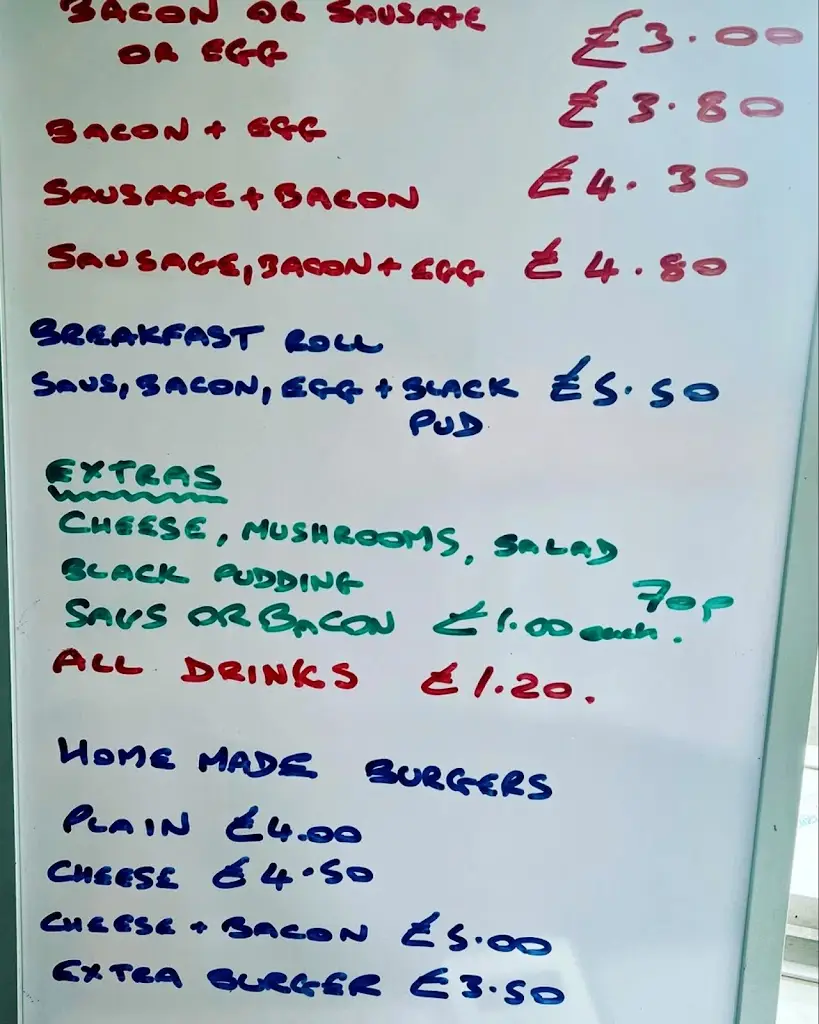 BACON OR SAUSAGE
OR EGG £3.00
BACON + EGG £3.80
SAUSAGE + BACON £4.30
SAUSAGE, BACON + EGG £4.80
BREAKFAST ROLL
SAUS, BACON, EGG + BLACK £5.50
PUD
EXTRAS
CHEESE, MUSHROOMS, SALAD
BLACK PUDDING 70p
SAUS OR BACON £1.00 each.
ALL DRINKS £1.20.
HOME MADE BURGERS
PLAIN £4.00
CHEESE £4.50
CHEESE + BACON £5.00
EXTRA BURGER £3.50